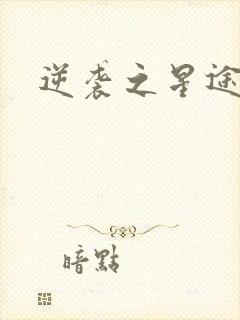 逆袭之星途
暗點